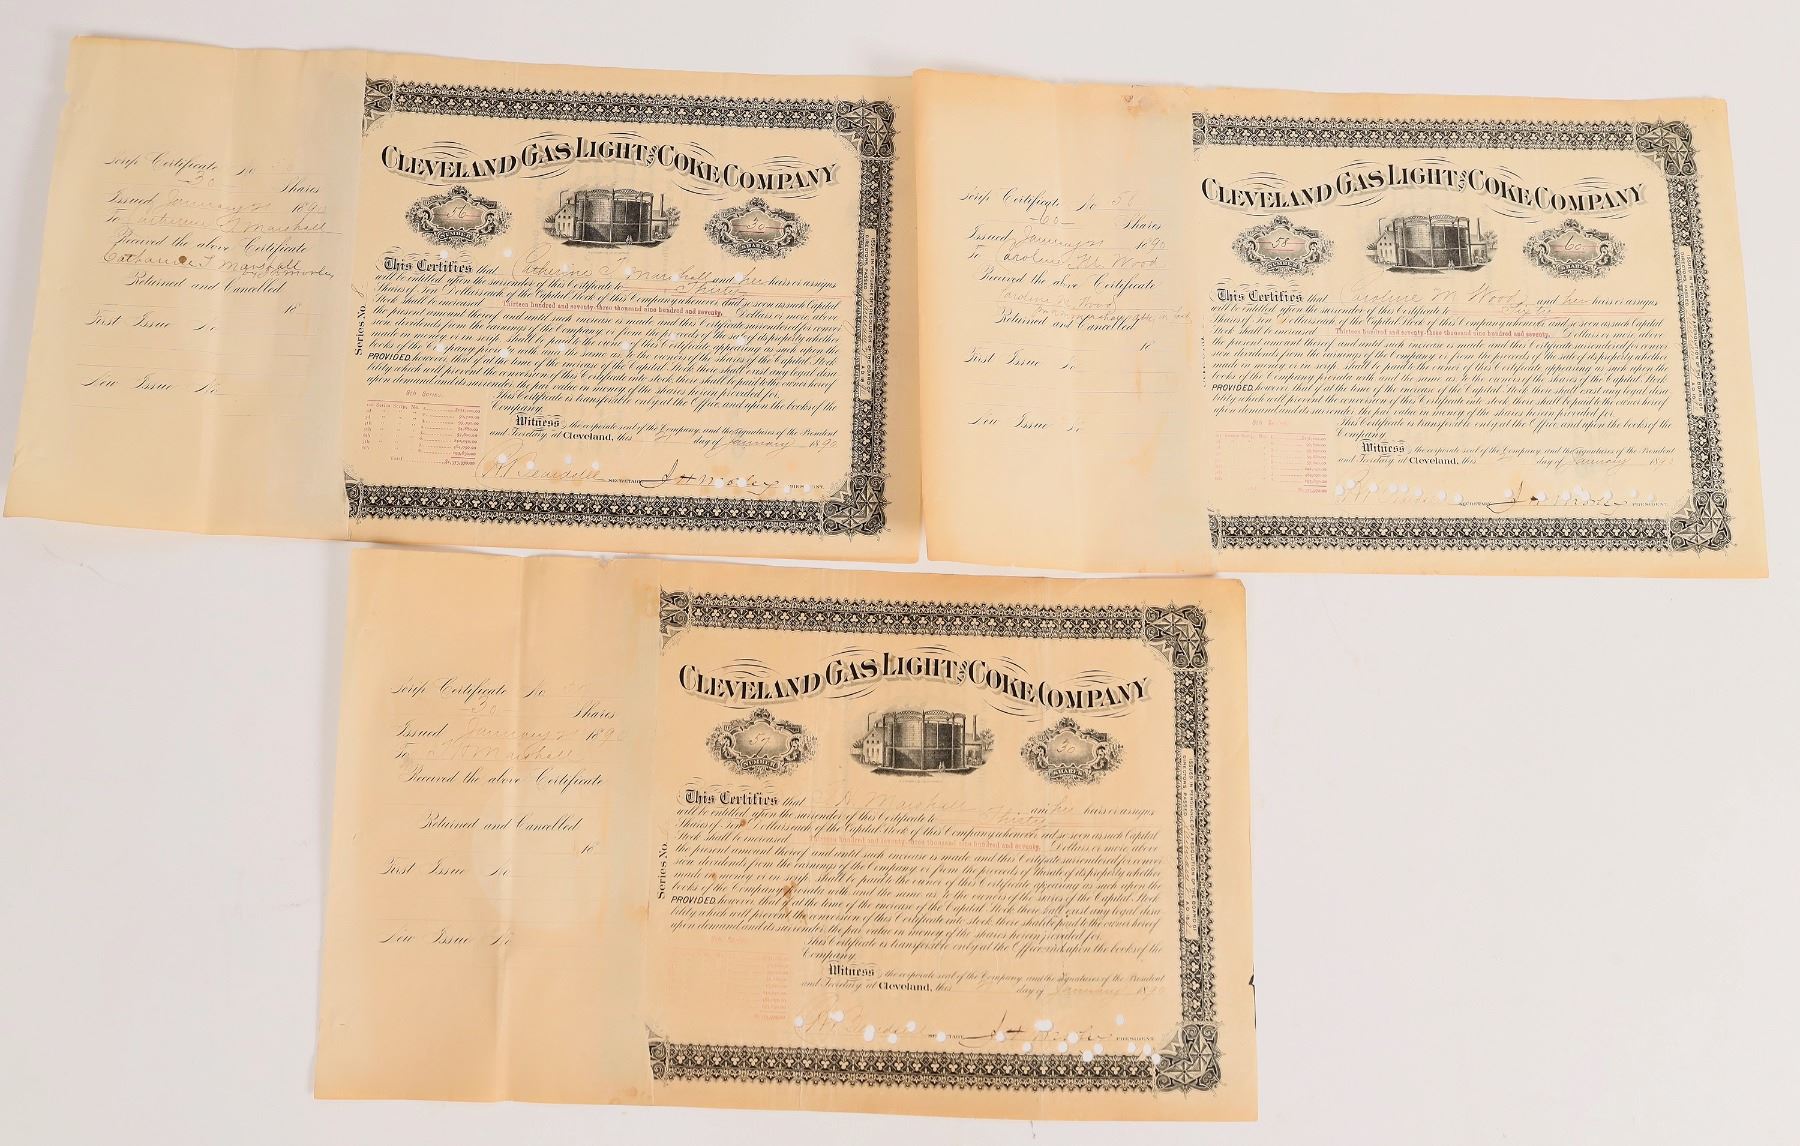 Scrip Certificate No 56
30 Shares
Issued January 21 1890
To Catherine T Marshall
Received the above Certificate
Catharine T Marshall
Returned and Cancelled
18
First Issue No
New Issue No
CLEVELAND GAS LIGHT AND COKE COMPANY
56
NUMBER
30
SHARES
This Certifies that Catherine T Marshall and her heirs or assigns
will be entitled upon the surrender of this Certificate to Thirty
Shares of Ten Dollars each of the Capital Stock of this Company whenever and so soon as such Capital
Stock shall be increased Thirteen hundred and seventy-three thousand nine hundred and seventy. Dollars or more above
the present amount thereof and until such increase is made and this Certificate surrendered for conver
sion dividends from the earnings of the Company or from the proceeds of the sale of its property whether
made in money or in scrip shall be paid to the owner of this Certificate appearing as such upon the
books of the Company pro rata with and the same as to the owners of the shares of the Capital Stock
PROVIDED, however, that if at the time of the increase of the Capital Stock there shall exist any legal disa
bility which will prevent the conversion of this Certificate into stock, there shall be paid to the owner hereof
upon demand and its surrender, the par value in money of the shares herein provided for.
This Certificate is transferable only at the Office and upon the books of the
Company.
Witness, the corporate seal of the Company, and the signatures of the President
and Secretary at Cleveland, this 21 day of January 1890
SECRETARY J H Morley PRESIDENT.
Series No.
8th Series.
Scrip Certificate No 58
60 Shares
Issued January 21 1890
To Caroline M Wood
Received the above Certificate
Caroline M Wood
Returned and Cancelled
18
First Issue No
New Issue No
CLEVELAND GAS LIGHT AND COKE COMPANY
58
NUMBER
60
SHARES
This Certifies that Caroline M Wood and her heirs or assigns
will be entitled upon the surrender of this Certificate to Sixty
Shares of Ten Dollars each of the Capital Stock of this Company whenever and so soon as such Capital
Stock shall be increased Thirteen hundred and seventy-three thousand nine hundred and seventy. Dollars or more above
the present amount thereof and until such increase is made and this Certificate surrendered for conver
sion dividends from the earnings of the Company or from the proceeds of the sale of its property whether
made in money or in scrip shall be paid to the owner of this Certificate appearing as such upon the
books of the Company pro rata with and the same as to the owners of the shares of the Capital Stock
PROVIDED, however, that if at the time of the increase of the Capital Stock there shall exist any legal disa
bility which will prevent the conversion of this Certificate into stock, there shall be paid to the owner hereof
upon demand and its surrender, the par value in money of the shares herein provided for.
This Certificate is transferable only at the Office and upon the books of the
Company.
Witness, the corporate seal of the Company, and the signatures of the President
and Secretary at Cleveland, this 21 day of January 1890
SECRETARY J H Morley PRESIDENT
8th Series.
Scrip Certificate No 57
30 Shares
Issued January 21 1890
To Marshall
Received the above Certificate
Returned and Cancelled
18
First Issue No
New Issue No
CLEVELAND GAS LIGHT AND COKE COMPANY
57
NUMBER
30
SHARES
This Certifies that Marshall and his heirs or assigns
will be entitled upon the surrender of this Certificate to Thirty
Shares of Ten Dollars each of the Capital Stock of this Company whenever and so soon as such Capital
Stock shall be increased Thirteen hundred and seventy-three thousand nine hundred and seventy. Dollars or more above
the present amount thereof and until such increase is made and this Certificate surrendered for conver
sion dividends from the earnings of the Company or from the proceeds of the sale of its property whether
made in money or in scrip shall be paid to the owner of this Certificate appearing as such upon the
books of the Company pro rata with and the same as to the owners of the shares of the Capital Stock
PROVIDED, however, that if at the time of the increase of the Capital Stock there shall exist any legal disa
bility which will prevent the conversion of this Certificate into stock, there shall be paid to the owner hereof
upon demand and its surrender, the par value in money of the shares herein provided for.
This Certificate is transferable only at the Office and upon the books of the
Company.
Witness, the corporate seal of the Company, and the signatures of the President
and Secretary at Cleveland, this 21 day of January 1890
SECRETARY J H Morley PRESIDENT
Series No.
8th Series.